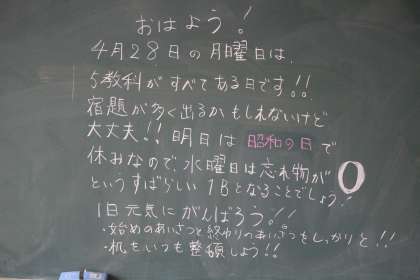 おはよう!
4月28日の月曜日は、
5教科がすべてある日です!!
宿題が多く出るかもしれないけど
大丈夫!! 明日は昭和の日で
休みなので、水曜日は忘れ物が0
というすばらしい1Bとなることでしょう!
1日元気にがんばろう!!
・始めのあいさつと終わりのあいさつをしっかりと!!
・机をいつも整頓しよう!!